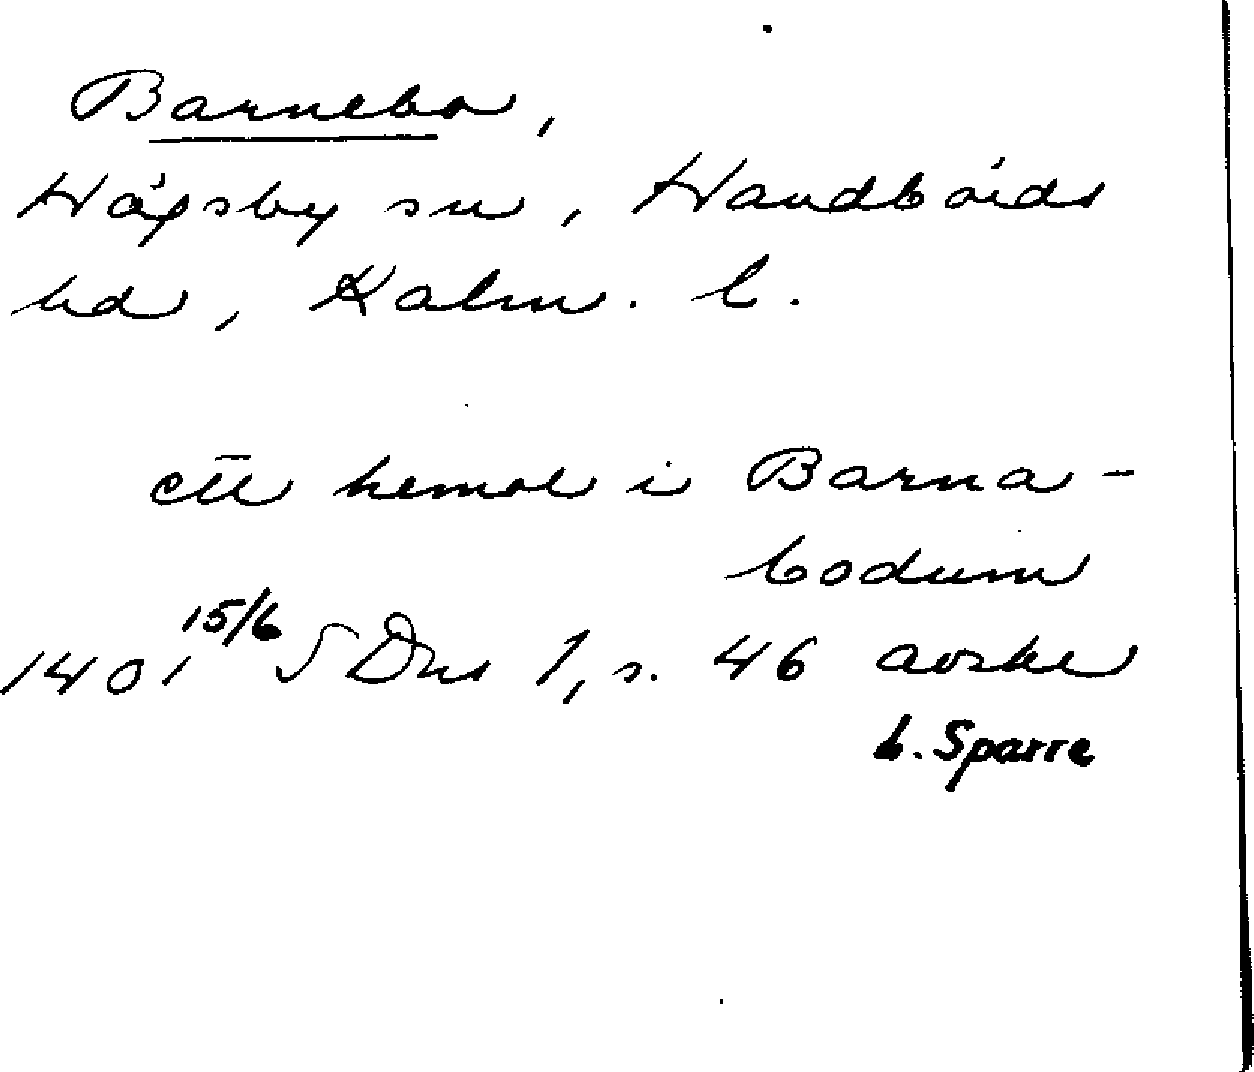 Barnebo,
Högsby sn, Handbörds
hd, Kalm. l.
ett hemol i Barna-
bodum
1401 15/6 SDns 1, s. 46 avskr
L. Sparre